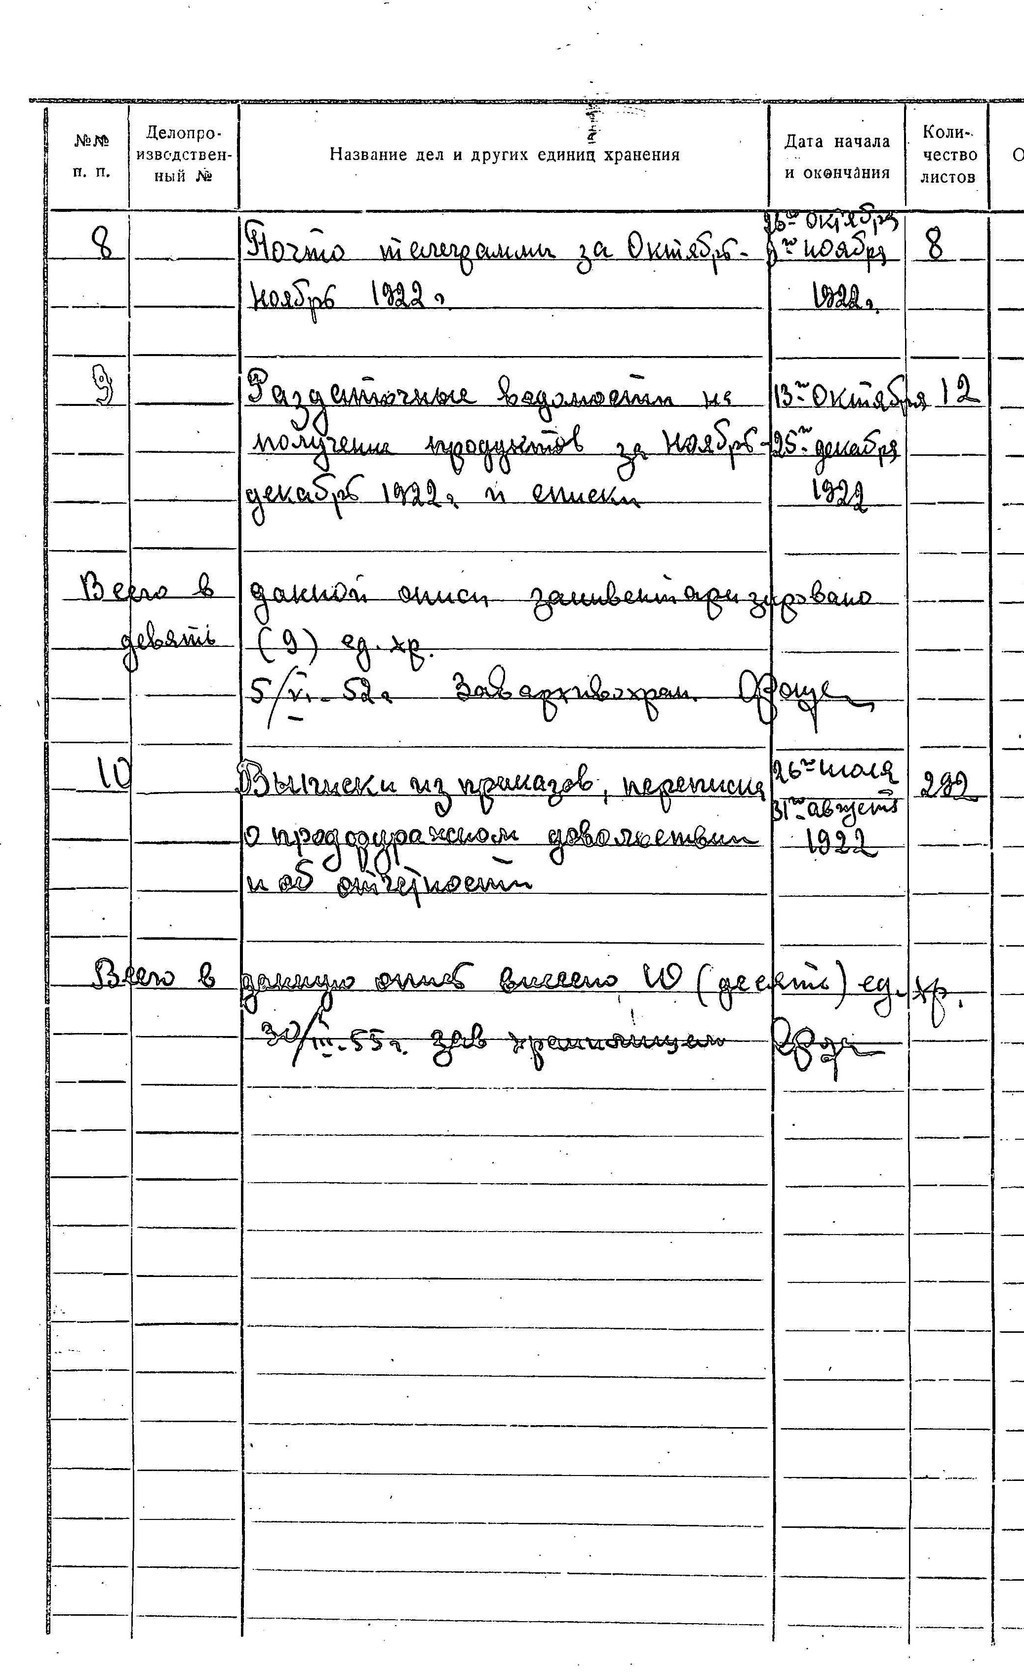 №№ п. п.
Делопро-
изводствен-
ный №
Название дел и других единиц хранения
Дата начала
и окончания
Коли-
чество
листов
О
8 Почто телеграммы за Октябрь- 26го октября 8
ноября
ноябрь 1922 г. 1922 г.
9 Раздаточные ведомости на 13го Октября 12
получение продуктов за ноябрь- 25го декабря
декабрь 1922 г. и списки 1922
Всего в данной описи заинвентаризировано
девять (9) ед. хр.
5/VI-52 г. Зав архивохран.
10 Выписки из приказов, переписка 26го июля 292
о продфуражном довольствии 31го августа
и об отчетности 1922
Всего в данную опись внесено 10 (десять) ед. хр.
30/III-55 г. зав хранилищем